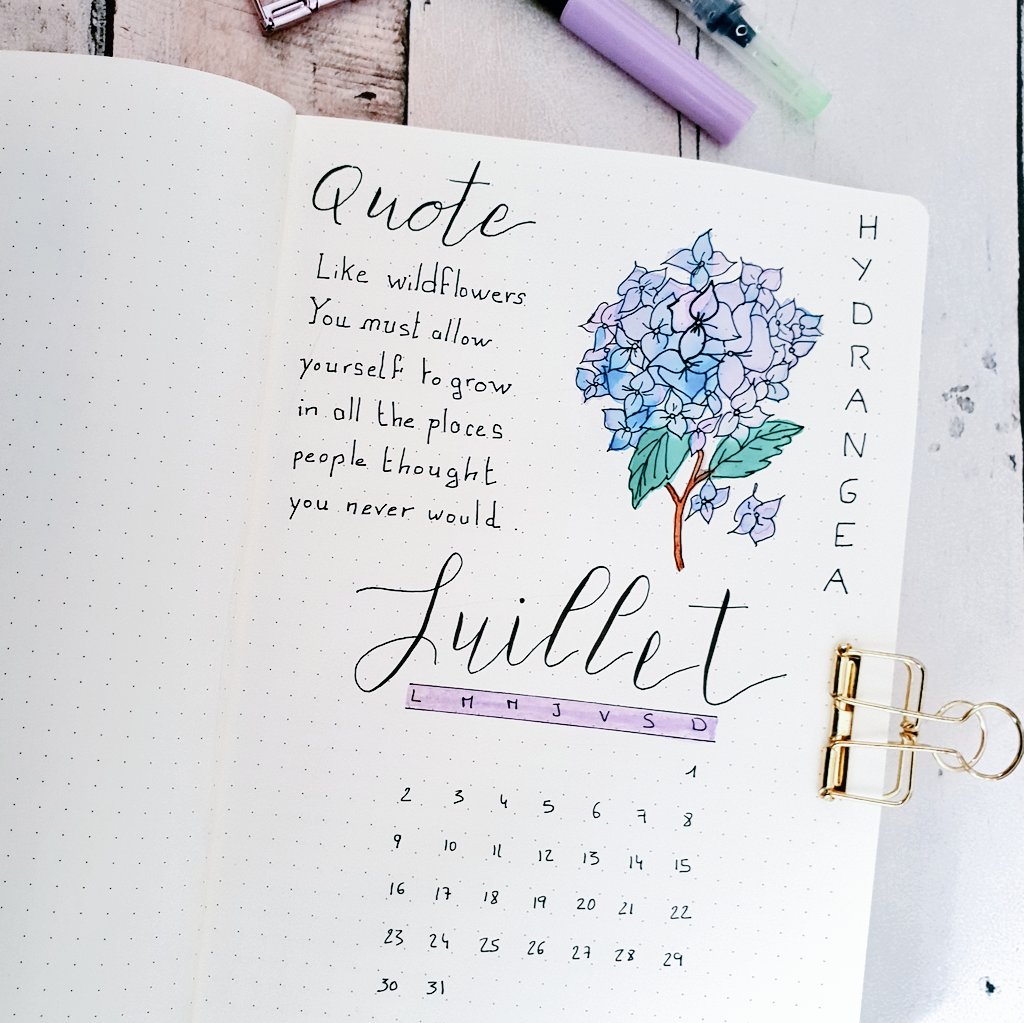 Quote
Like wildflowers
You must allow
yourself to grow
in all the places
people thought
you never would.
HYDRANGEA
Juillet
L M M J V S D
1
2 3 4 5 6 7 8
9 10 11 12 13 14 15
16 17 18 19 20 21 22
23 24 25 26 27 28 29
30 31